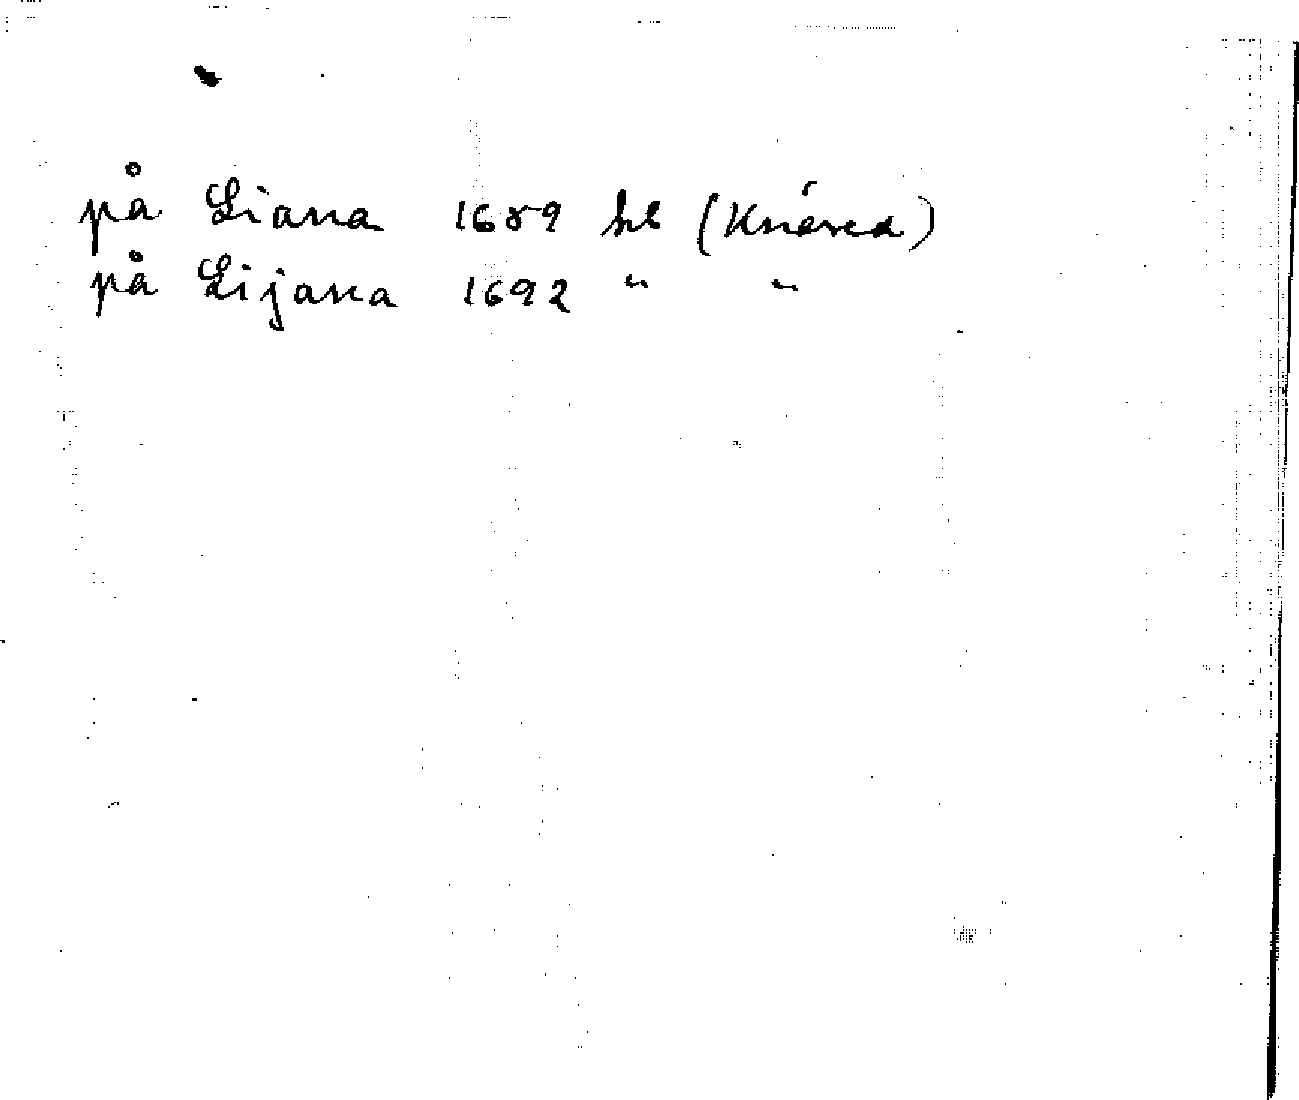 på Liana 1689 hl (Knäred)
på Lijana 1692 " "